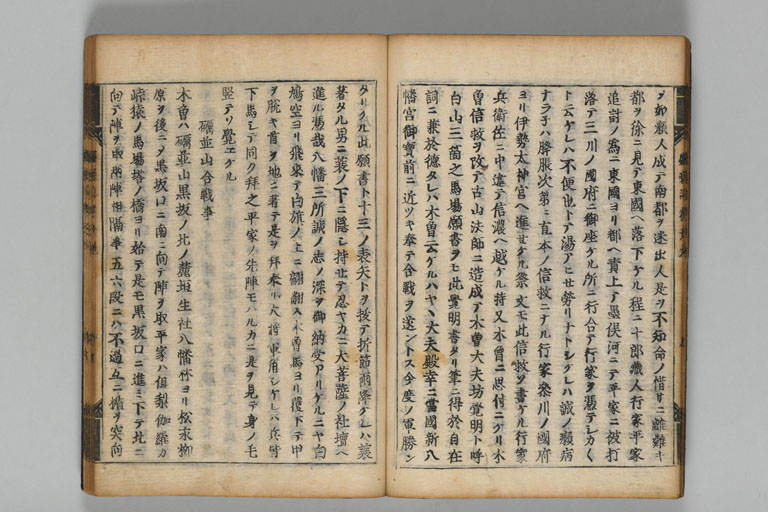 ヲ如癩人成テ南都ヲ迷出人是ヲ不知命ノ惜サニ離難キ
都ヲ徐ニ見テ東國ヘ落下ケル程ニ十郎藏人行家平家
追討ノ爲ニ東國ヨリ都ヘ責上テ墨俣河ニテ平家ニ被打
落テ三川ノ國府ニ御座ケル所ニ行合テ行家ヲ憑テシカ〱
ト云ケレハ不便也トテ湯アヒセ勞リナトシケレハ誠ノ癩病
ナラネハ膨脹次第ニ直本ノ信救ニナル行家參川ノ國府
ヨリ伊勢太神宮ヘ進セケル祭文モ此信救ソ書ケル行家
兵衛佐ニ中違テ信濃ヘ越ケル時又木曽ニ思付ニケリ木
曽信救ヲ改テ古山法師ニ造成テ木曽大夫坊覺明ト呼
白山三箇之馬場願書ヲモ此覺明書タリ筆ニ得於自在
詞ニ兼於德タレハ木曽云ケルハヤヽ大夫殿幸ニ當國新八
幡宮御寶前ニ近ツキ奉テ合戰ヲ遂ントス今度ノ軍勝ン
タリケル此願書ト十三ノ表矢トヲ抜テ折節雨降ケレハ蓑
著タル男ニ蓑ノ下ニ隱シ持セテ忍ヤカニ大菩薩ノ社壇ヘ
進ル憑哉八幡三所誠ノ志ノ深ヲ御納受アリケルニヤ白
鳩空ヨリ飛來テ白旗ノ上ニ翩翻ス木曽馬ヨリ下テ甲
ヲ脱キ首ヲ地ニ著テ是ヲ拜奉ル大將軍角シケレハ兵皆
下馬シテ同ク拜之平家ノ先陣モハルカニ是ヲ見テ身ノ毛
竪テソ覺エケル
礪並山合戰事
木曽ハ礪並山黒坂ノ北ノ麓垣生社八幡林ヨリ松永柳
原ヲ後ニシ黒坂口ニ南ニ向テ陣ヲ取平家ハ倶梨伽羅カ
峠猿ノ馬場塔ノ橋ヨリ始テ是モ黒坂口ニ進ミ下テ北ニ
向テ陣ヲ取兩陣相隔事五六段ニハ不過互ニ楯ヲ突向